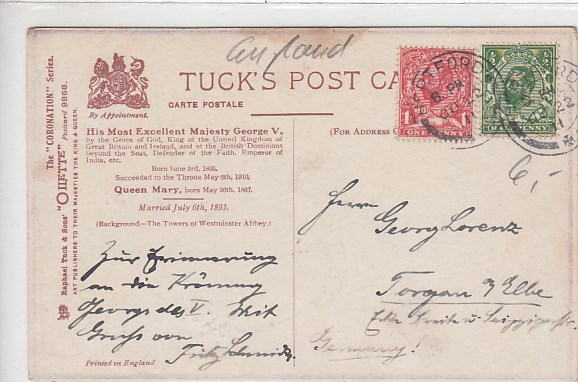 England
TUCK'S POST CA
CARTE POSTALE
By Appointment.
The "CORONATION" Series.
"OILETTE" Postcard 9888.
Raphael Tuck & Sons'
ART PUBLISHERS TO THEIR MAJESTIES THE KING & QUEEN.
His Most Excellent Majesty George V.,
by the Grace of God, King of the United Kingdom of
Great Britain and Ireland, and of the British Dominions
beyond the Seas, Defender of the Faith, Emperor of
India, etc.
Born June 3rd, 1865.
Succeeded to the Throne May 6th, 1910.
Queen Mary, born May 26th, 1867.
Married July 6th, 1893.
(Background—The Towers of Westminster Abbey.)
(FOR ADDRESS
Zur Erinnerung
an die Krönung
Georgs des V. Mit
Gruss von
Fritz
Printed in England
1 ONE PENNY 1
HALF PENNY
6,-
Herrn
Georg Lorenz
Torgau a/Elbe
Ecke
Germany!